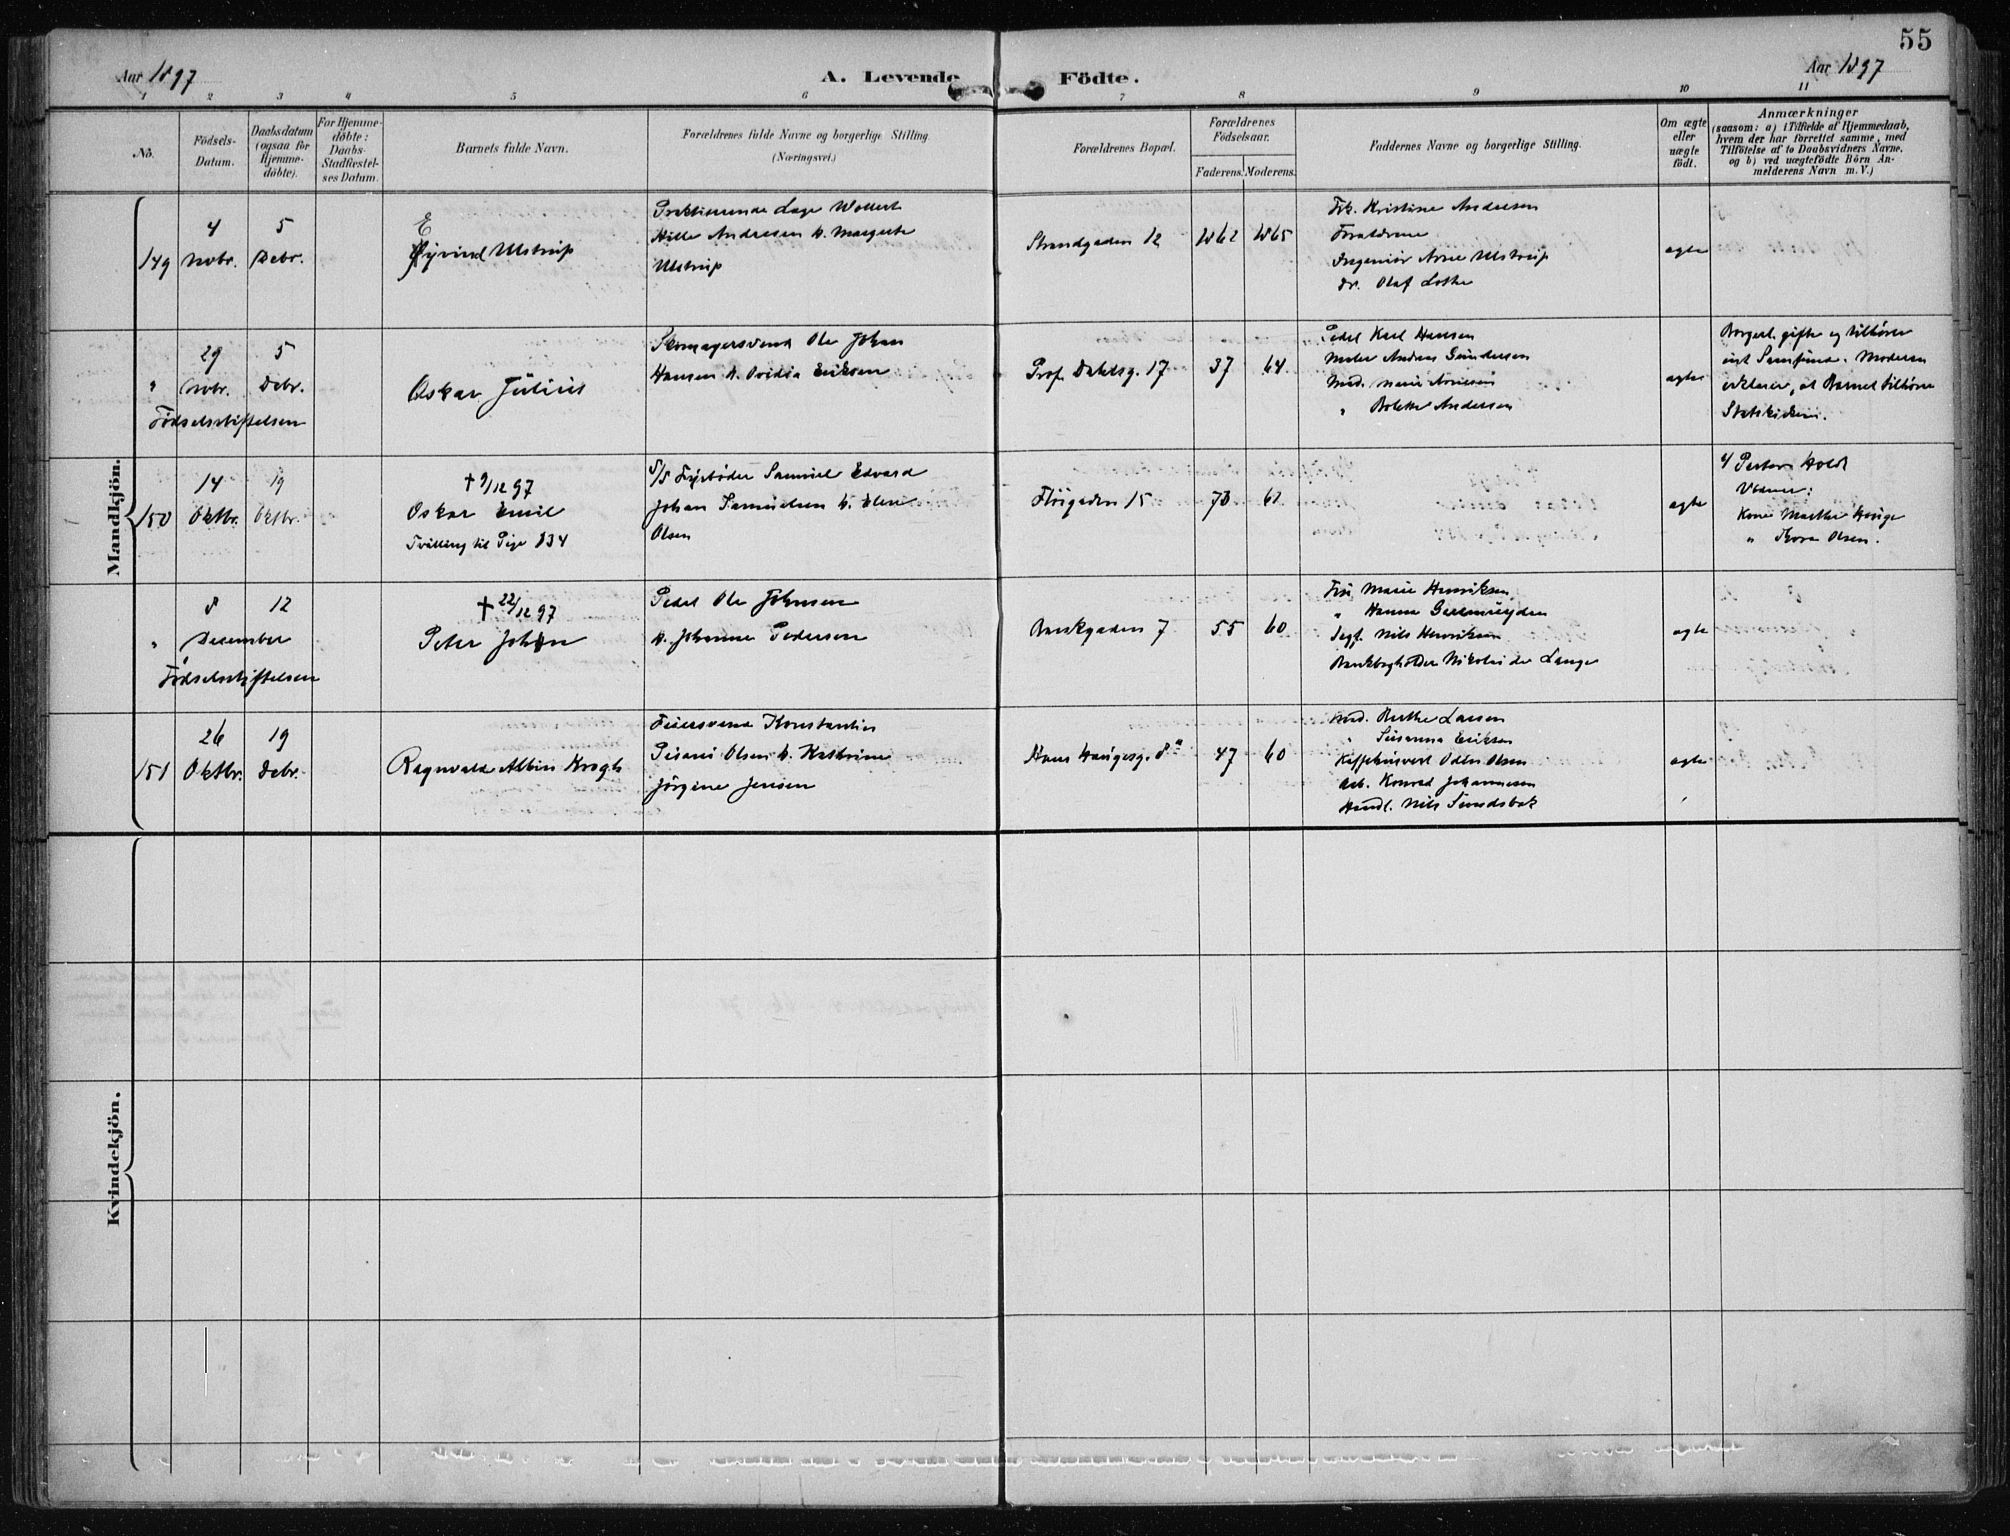 55
Aar 1897
A. Levende Födte.
Aar 1897
1 2 3 4 5 6 7 8 9 10 11
No.
Födsels-
Datum.
Daabsdatum
(ogsaa for
Hjemme-
döbte).
For Hjemme-
döbte:
Daabs-
Stadfæstel-
ses Datum.
Barnets fulde Navn.
Forældrenes fulde Navne og borgerlige Stilling
(Næringsvei.)
Forældrenes Bopæl.
Forældrenes
Födselsaar.
Faderens. Moderens.
Faddernes Navne og borgerlige Stilling.
Om ægte
eller
uægte
födt.
Anmærkninger
(saasom: a) i Tilfælde af Hjemmedaab,
hvem der har forrettet samme, med
Tilföielse af to Daabsvidners Navne,
og b) ved uægtefödte Börn An-
melderens Navn m. V.)
Mandkjön.
149
4
Novbr.
5
Debr.
E
Øyvind Ulstrup
Praktiserende Læge Wollert
Hille Andresen & Margrete
Ulstrup
Strandgaden 12
1862
1865
Frk. Kristine Andresen
Forældrene
Ingeniør Arne Ulstrup
Dr. Olaf Lothe
ægte
"
29
Novbr.
Fødselsstiftelsen
5
Debr.
Oskar Julius
Skomagersvend Ole Johan
Hansen & Ovidia Eriksen
Prof. Dahlsg. 17
37
64
Pedel Karl Hansen
Maler Anders Gundersen
Mad. Marie Arnesen
" Bolette Andersen
ægte
Borgerl. gifte og tilhører
intet Samfund. Moderen
erklærer, at Barnet tilhører
Statskirken.
150
14
Oktbr.
19
Oktbr.
+ 9/12 97
Oskar Emil
Tvilling til Pige 134
S/S Fyrbøder Samuel Edvard
Johan Samuelsen & Elene
Olsen
Fløigaden 15
73
62
ægte
af Pastor Holdt
Vidner:
Kone Marthe Hauge
" Thora Olsen.
"
8
December
Fødselsstiftelsen
12
+ 22/12 97
Peter Johan
Pedel Ole Johnsen
& Johanne Pedersen
Bankgaden 7
55
60
Fru Marie Henriksen
" Hanna Geelmuyden
Sagf. Nils Henriksen
Bankbogholder Nikolai de Lange
ægte
151
26
Oktbr.
19
Debr.
Ragnvald Albin Krogh
Feiersvend Konstantin
Olsen & Kathrine
Jørgine Jensen
Hans Haugesg. 8a
47
60
Mad. Berthe Larsen
" Susanna Eriksen
Kaffehusvert Odin Olsen
Arb. Konrad Johannesen
Handl. Nils Sundsbak
ægte
Kvindekjön.